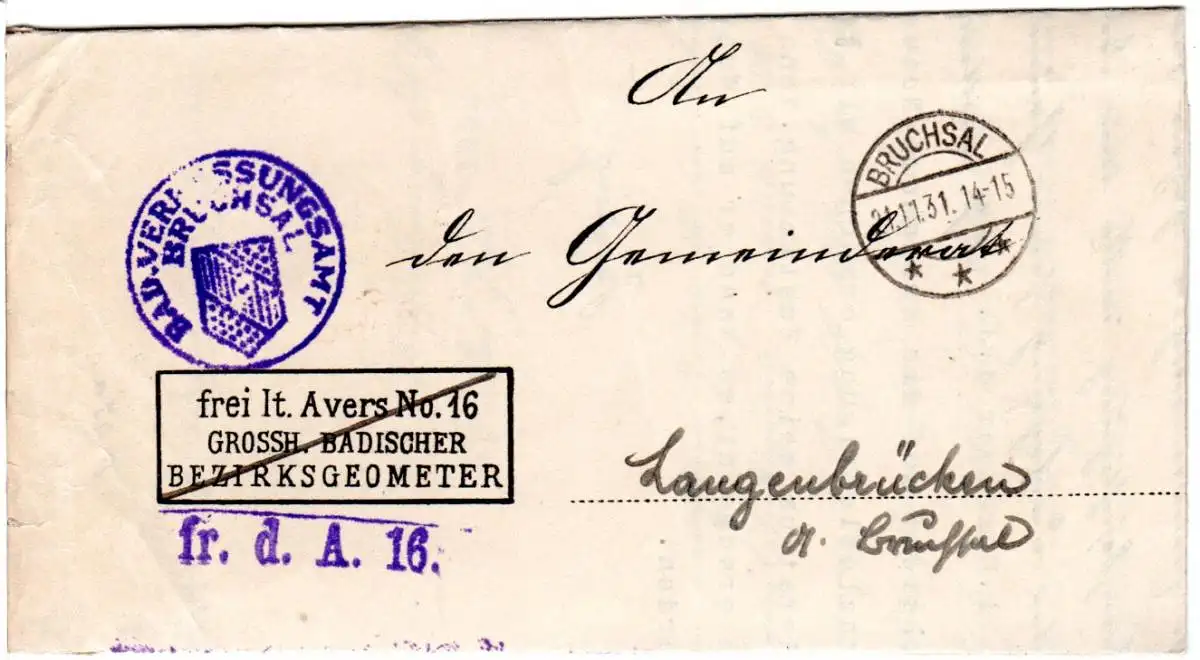 An
BRUCHSAL
21.11.31. 14-15
den Gemeinderat
BAD. VERMESSUNGSAMT
BRUCHSAL
frei lt. Avers No. 16
GROSSH. BADISCHER
BEZIRKSGEOMETER
fr. d. A. 16.
Langenbrücken
A. Bruchsal